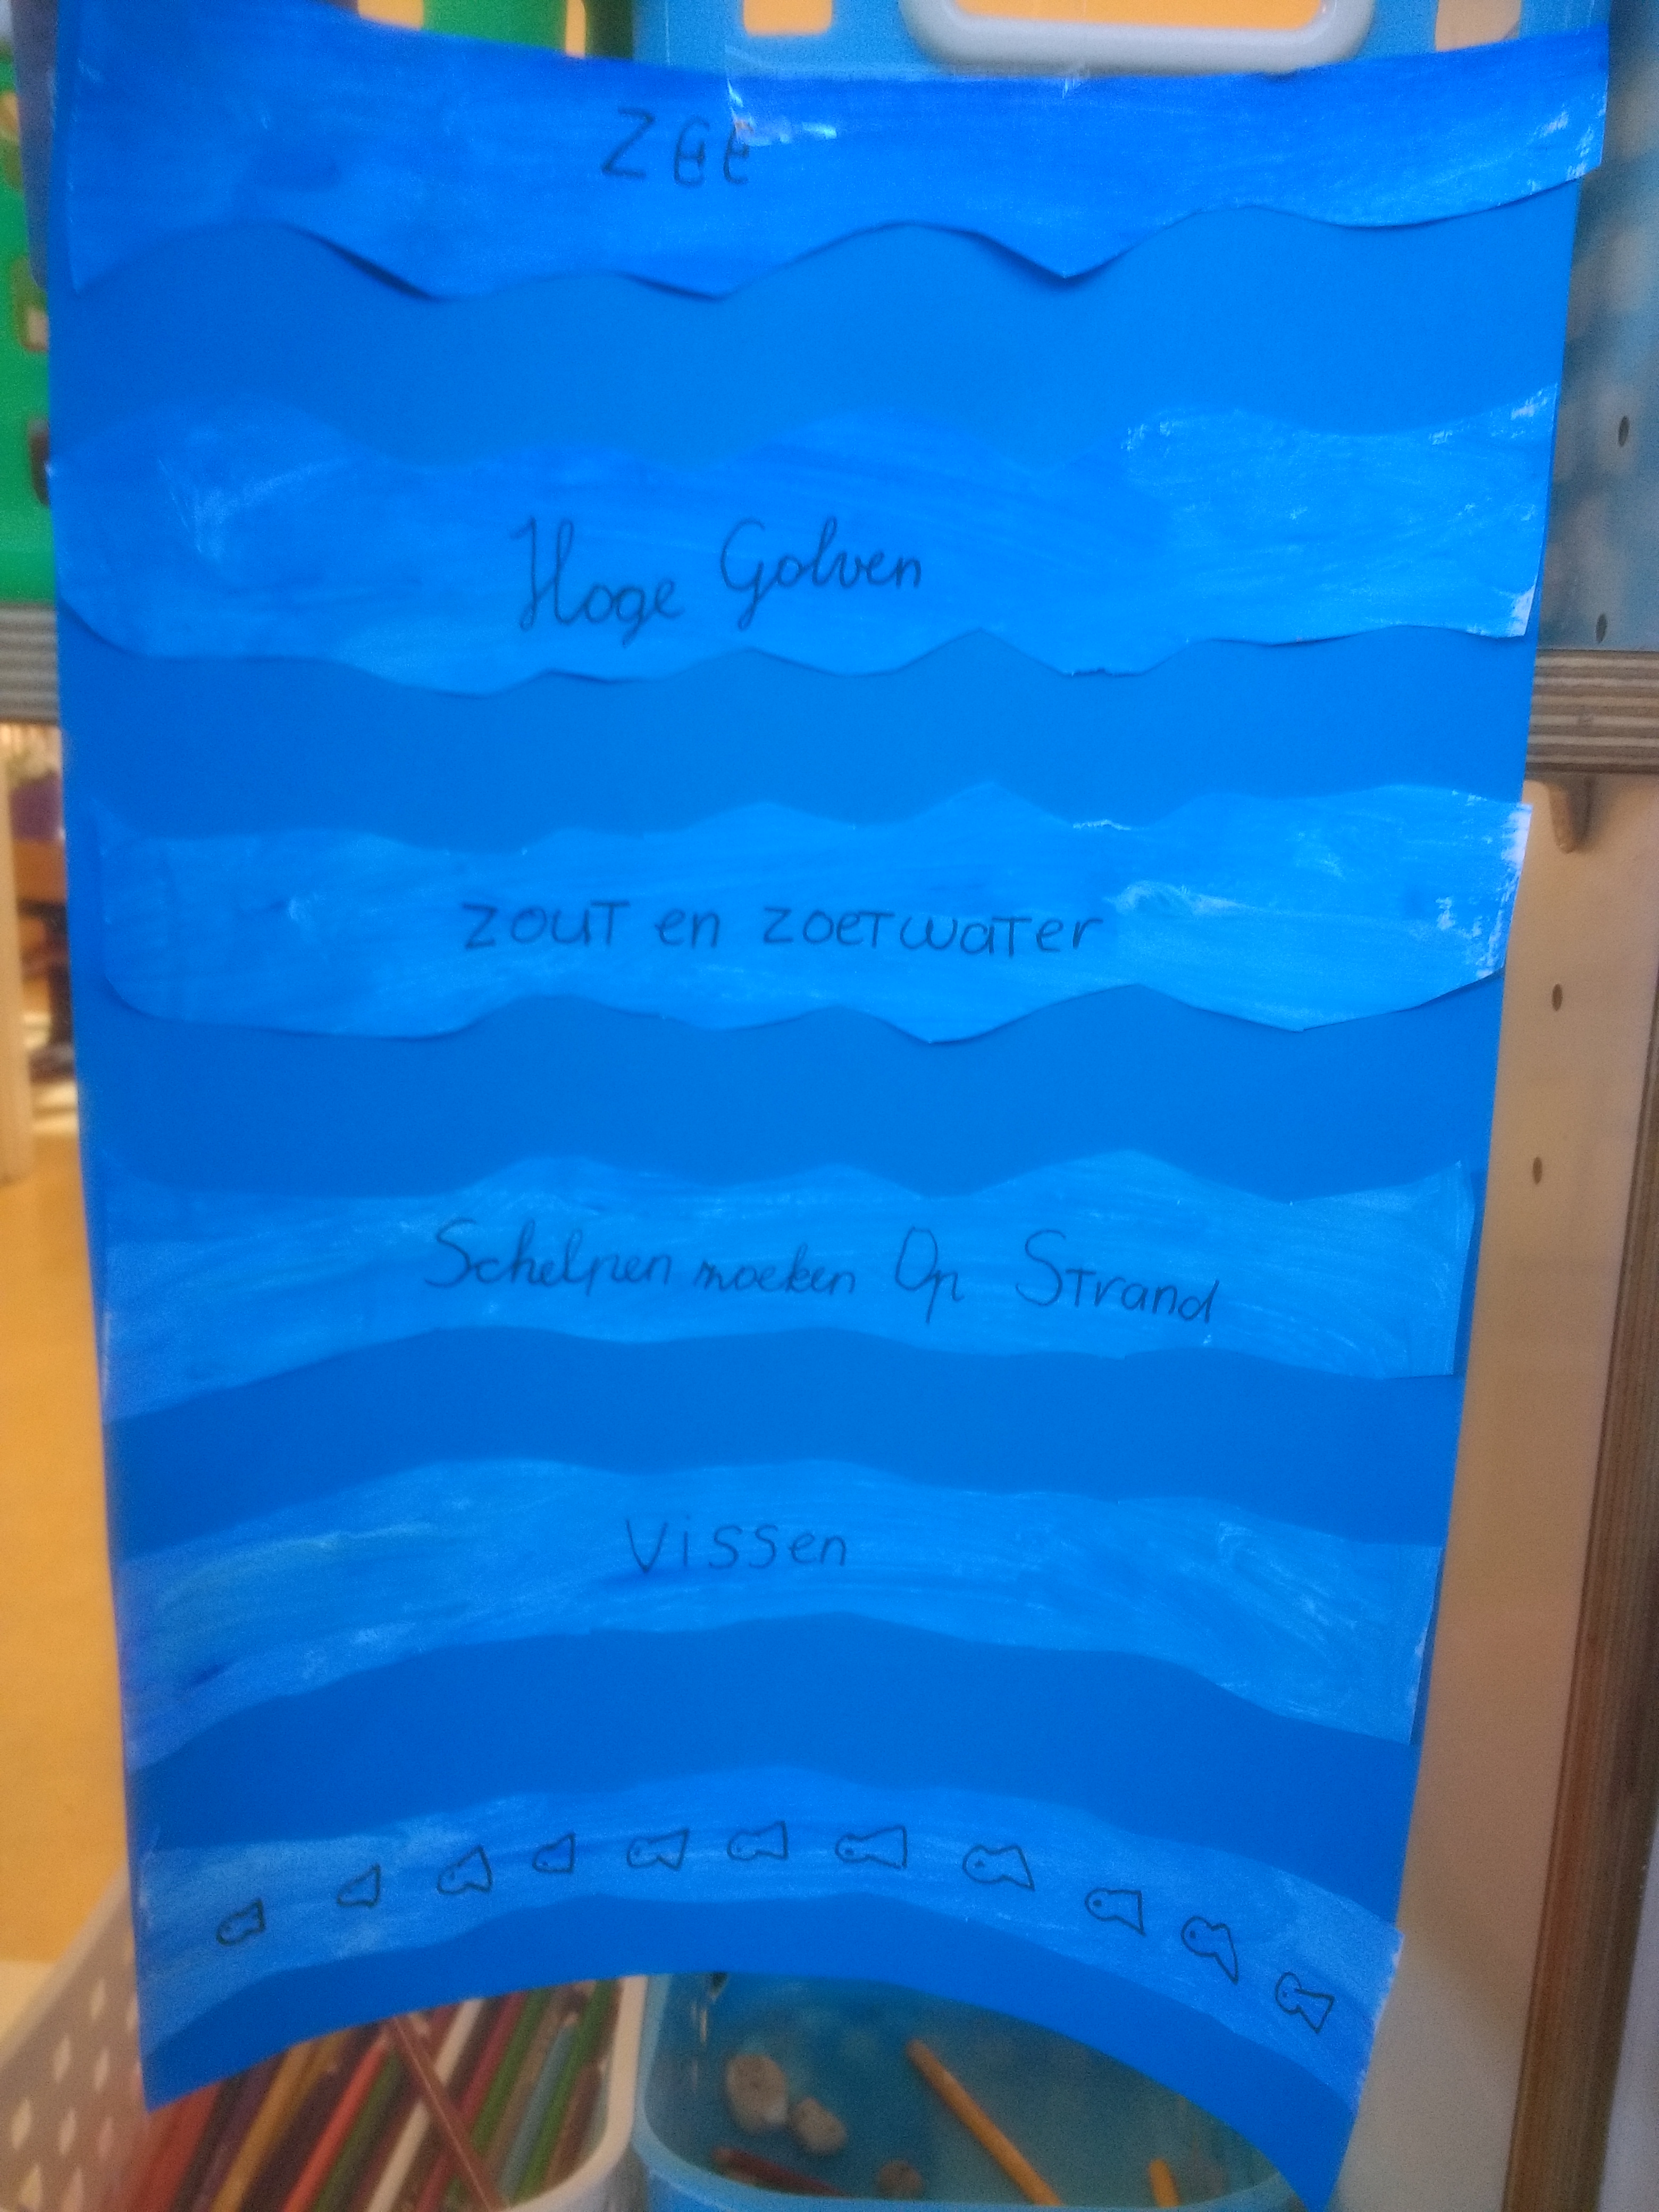 Zee
Hoge Golven
zout en zoetwater
Schelpen moeken Op Strand
Vissen